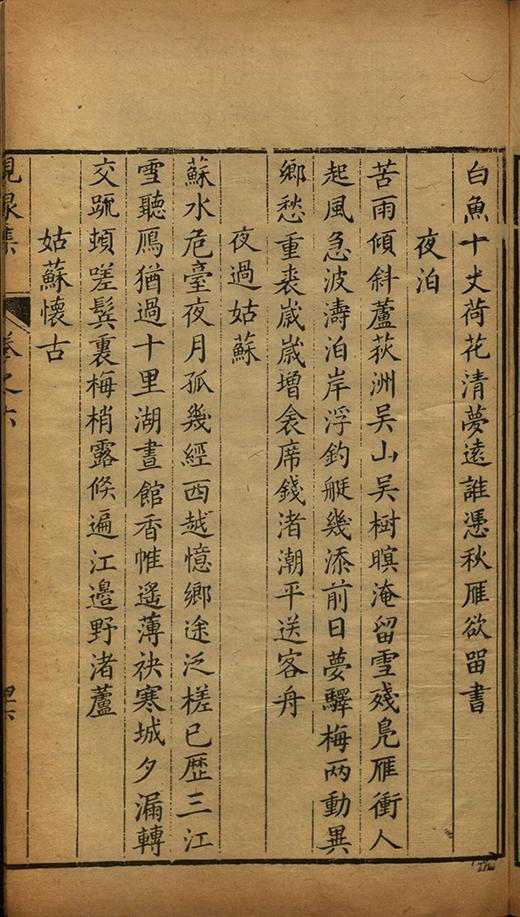 白魚十丈荷花清夢遠誰憑秋雁欲畱書
夜泊
苦雨傾斜蘆荻洲吳山吳樹暝淹留雪殘鳧雁衝人
起風急波濤泊岸浮釣艇幾添前日夢驛梅兩動異
鄉愁重裘歲歲增衾席錢渚潮平送客舟
夜過姑蘇
蘇水危臺夜月孤幾經西越憶鄉途泛槎已歷三江
雪聽鴈猶過十里湖晝館香帷遙薄袂寒城夕漏轉
交䟽頓嗟鬂裏梅梢露候遍江邊野渚蘆
姑蘇懷古
峴泉集
卷之六